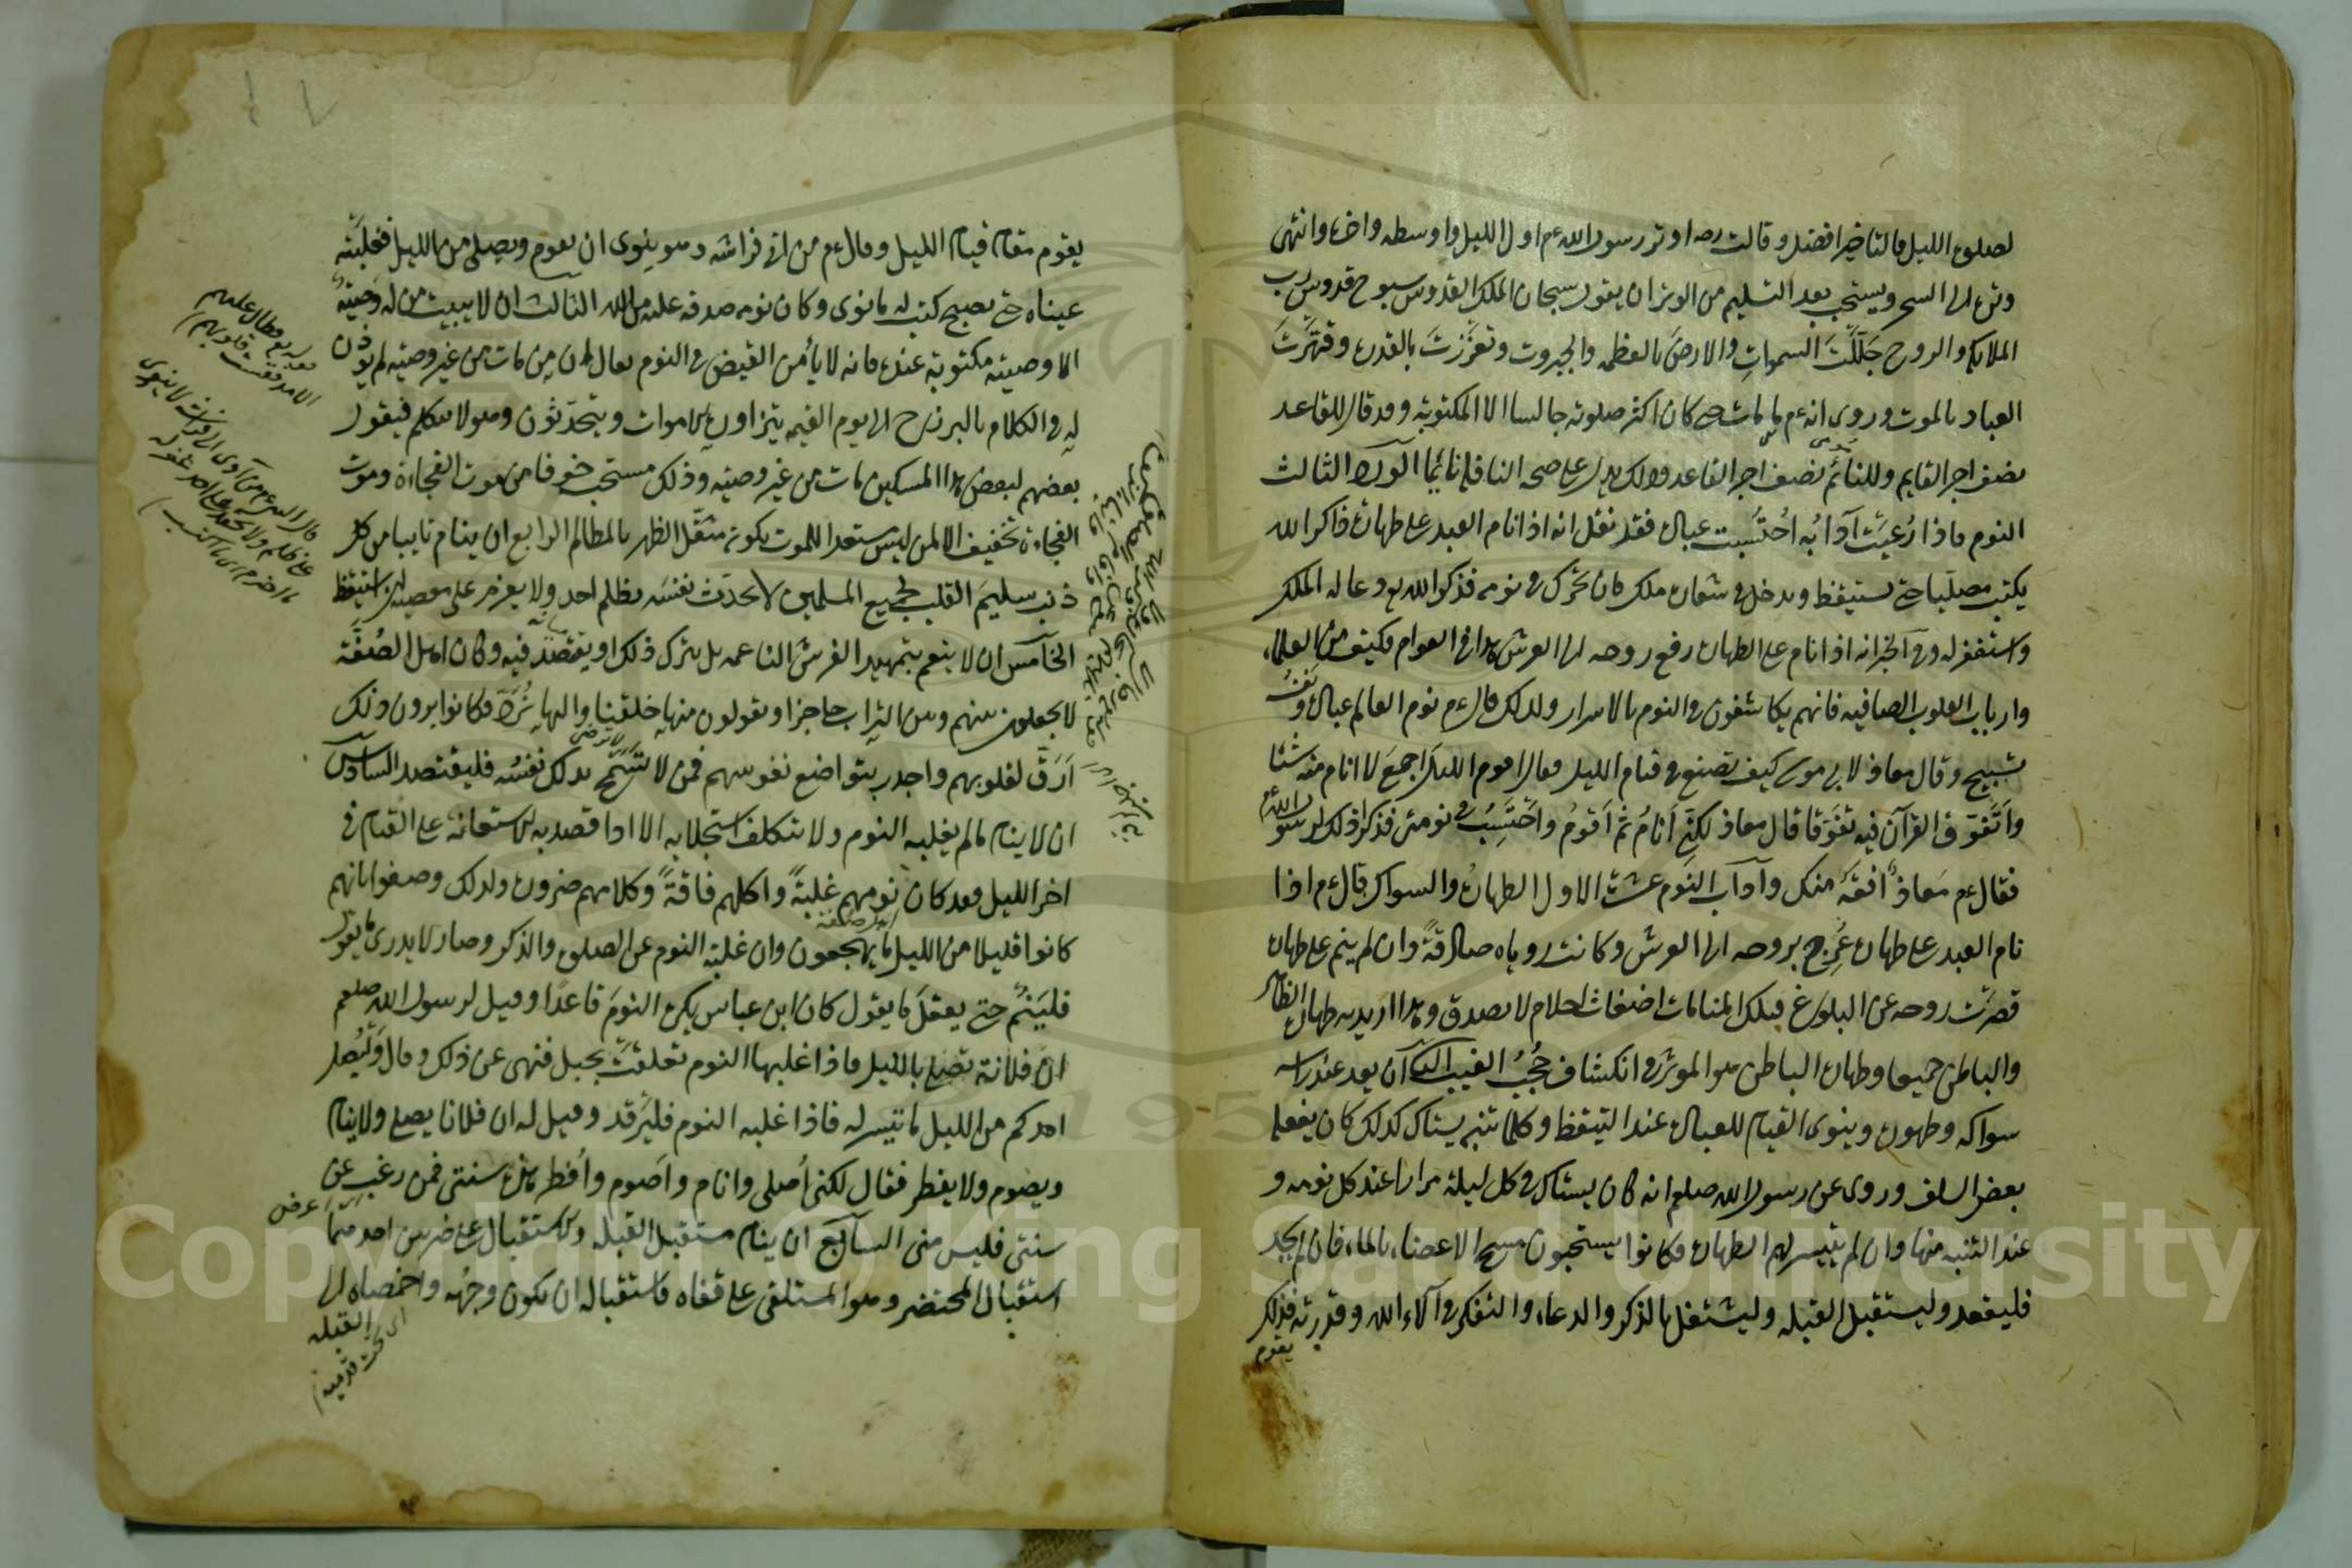 لصلوة الليل فالتاخير افضل وقالت رضه اوتر رسول الله ءم اول الليل واوسطه واخره وانتهى
وتره الى السحر ويستحب بعد التسليم من الوتر ان يقول سبحان الملك القدوس سبوح قدوس رب
الملايكة والروح جَلَّلْتَ السمواتِ والارضَ بالعظمه والجبروت وتعزَّزتَ بالقدرة وقهَرْتَ
العباد بالموت وروى انه ءم ما مات حتى كان اكثر صلوته جالسا الا المكتوبة وقد قال للقاعد
نصف اجر القايم وللنائم نصف اجر القاعد وذلك يدل على صحة النافلة نائما الورد الثالث
النوم فاذا رُعيَتْ آدابُه اُحتسبت عبادة فقد نقل انه اذا نام العبد على طهارة ذاكر الله
يكتب مصليا حتى يستيقظ ويدخل في شعاره ملك فان تحرّك في نومه فذكر الله يدعو له الملك
واستغفر له وفي الخبر انه اذا نام على الطهارة رفع روحه الى العرش هذا في العوام فكيف في العلماء
وارباب القلوب الصافيه فانهم يكاشفون في النوم بالاسرار ولذلك قال ءم نوم العالم عبادة ونَفَسُه
تسبيح وقال معاذ لابي موسى كيف تصنع في قيام الليل فقال اقوم الليل اجمعَ لا انام منه شيئا
واَتَفوّق القرآن فيه تفوّقا قال معاذ لكني اَنامُ ثم اَقومُ واَحْتَسِبُ في نومتي فذكرا ذلك لرسول الله ءم
فقال ءم مَعاذ افقهُ منك وآداب النوم عشرة الاول الطهارة والسواك قال ءم اذا
نام العبد على طهارة عُرِج بروحه الى العرش وكانت روياه صادقةً وان لم ينم على طهارة
قصرَتْ روحه عن البلوغ فتلك المنامات اضغاث احلام لا تصدق وهذا اريد به طهارة الظاهر
والباطن جميعا وطهارة الباطن هو الموثر في انكشاف حُجُبُ الغيب الثاني ان يعد عند راسه
سواكه وطهوره وينوى القيام للعبادة عند التيقظ وكلما تنبه يستاك كذلك كان يفعله
بعض السلف وروى عن رسول الله صلعم انه كان يستاك في كل ليلة مرارا عند كل نومه و
عند التنبه منها وان لم يتيسر لهم الطهارة فكانوا يستحبون مسح الاعضاء بالماء فان لم يجد
فليقعد وليستقبل القبله وليشتغل بالذكر والدعاء والتفكر في آلاء الله وقدرته فذلك
يقوم
يقوم مقام قيام الليل وقال ءم من اتى فراشه وهو ينوى ان يقوم ويصلى من الليل فغلبَتْه
عيناه حتى يصبح كتب له ما نوى وكان نومه صدقة عليه من الله الثالث ان لا يبيت من له وصية
الا وصيته مكتوبة عنده فانه لا يأمن القبض في النوم يقال ان من مات من غير وصيه لم يؤذن
له في الكلام بالبرزخ الى يوم القيمه يتزاوره الاموات ويتحدّثون وهو لا يتكلم فيقول
بعضهم لبعض هذا المسكين مات من غير وصيه وذلك مستحب خوفا من موت الفجاءة وموت
الفجاءة تخفيف الا لمن ليس مستعدا للموت بكونه مثقّل الظهر بالمظالم الرابع ان ينام تايبا من كل
ذنب سليمَ القلب لجميع المسلمين لا يحدّث نفسَه بظلم احد ولا يعزم على معصيه ان استيقظ
الخامس ان لا ينعم بتمهيد الفرش الناعمه بل يترك ذلك او يقتصد فيه وكان اهل الصُفّة
لا يجعلون بينهم وبين التراب حاجزا ويقولون منها خلقنا واليها نُرَدّ فكانوا يرون ذلك
اَرَقَّ لقلوبهم واجدر بتواضع نفوسهم فمن لا تَسْمَح بذلك نفسُه فليقتصد السادس
ان لا ينام ما لم يغلبه النوم ولا يتكلف استجلابه الا اذا قصد به الاستعانة على القيام في
اخر الليل فقد كان نومهم غلبةً واكلهم فاقةً وكلامهم ضرورة ولذلك وصفوا بانهم
كانوا قليلا من الليل ما يهجعون وان غلبه النوم عن الصلوة والذكر وصار لا يدرى ما يقول
فليَنَمْ حتى يعقلَ ما يقول كان ابن عباس يكره النومَ قاعدًا وقيل لرسول الله صلعم
انّ فلانة تصلى بالليل فاذا غلبها النوم تعلقتْ بحبل فنهى عن ذلك وقال ليُصل
احدكم من الليل ما تيسر له فاذا غلبه النوم فليَرقد وقيل له ان فلانا يصلى ولا ينام
ويصوم ولا يفطر فقال لكني اُصلى وانام واَصوم واُفطر هذه سنتى فمن رغب عن
سنتى فليس منى السابع ان ينام مستقبل القبله والاستقبال على ضربين احدهما
استقبال المحتضر وهو المستلقى على قفاه فاستقباله ان يكون وجهُه واخمصاه الى
القبله
اى تحت قدميه
Copyright © King Saud University
195